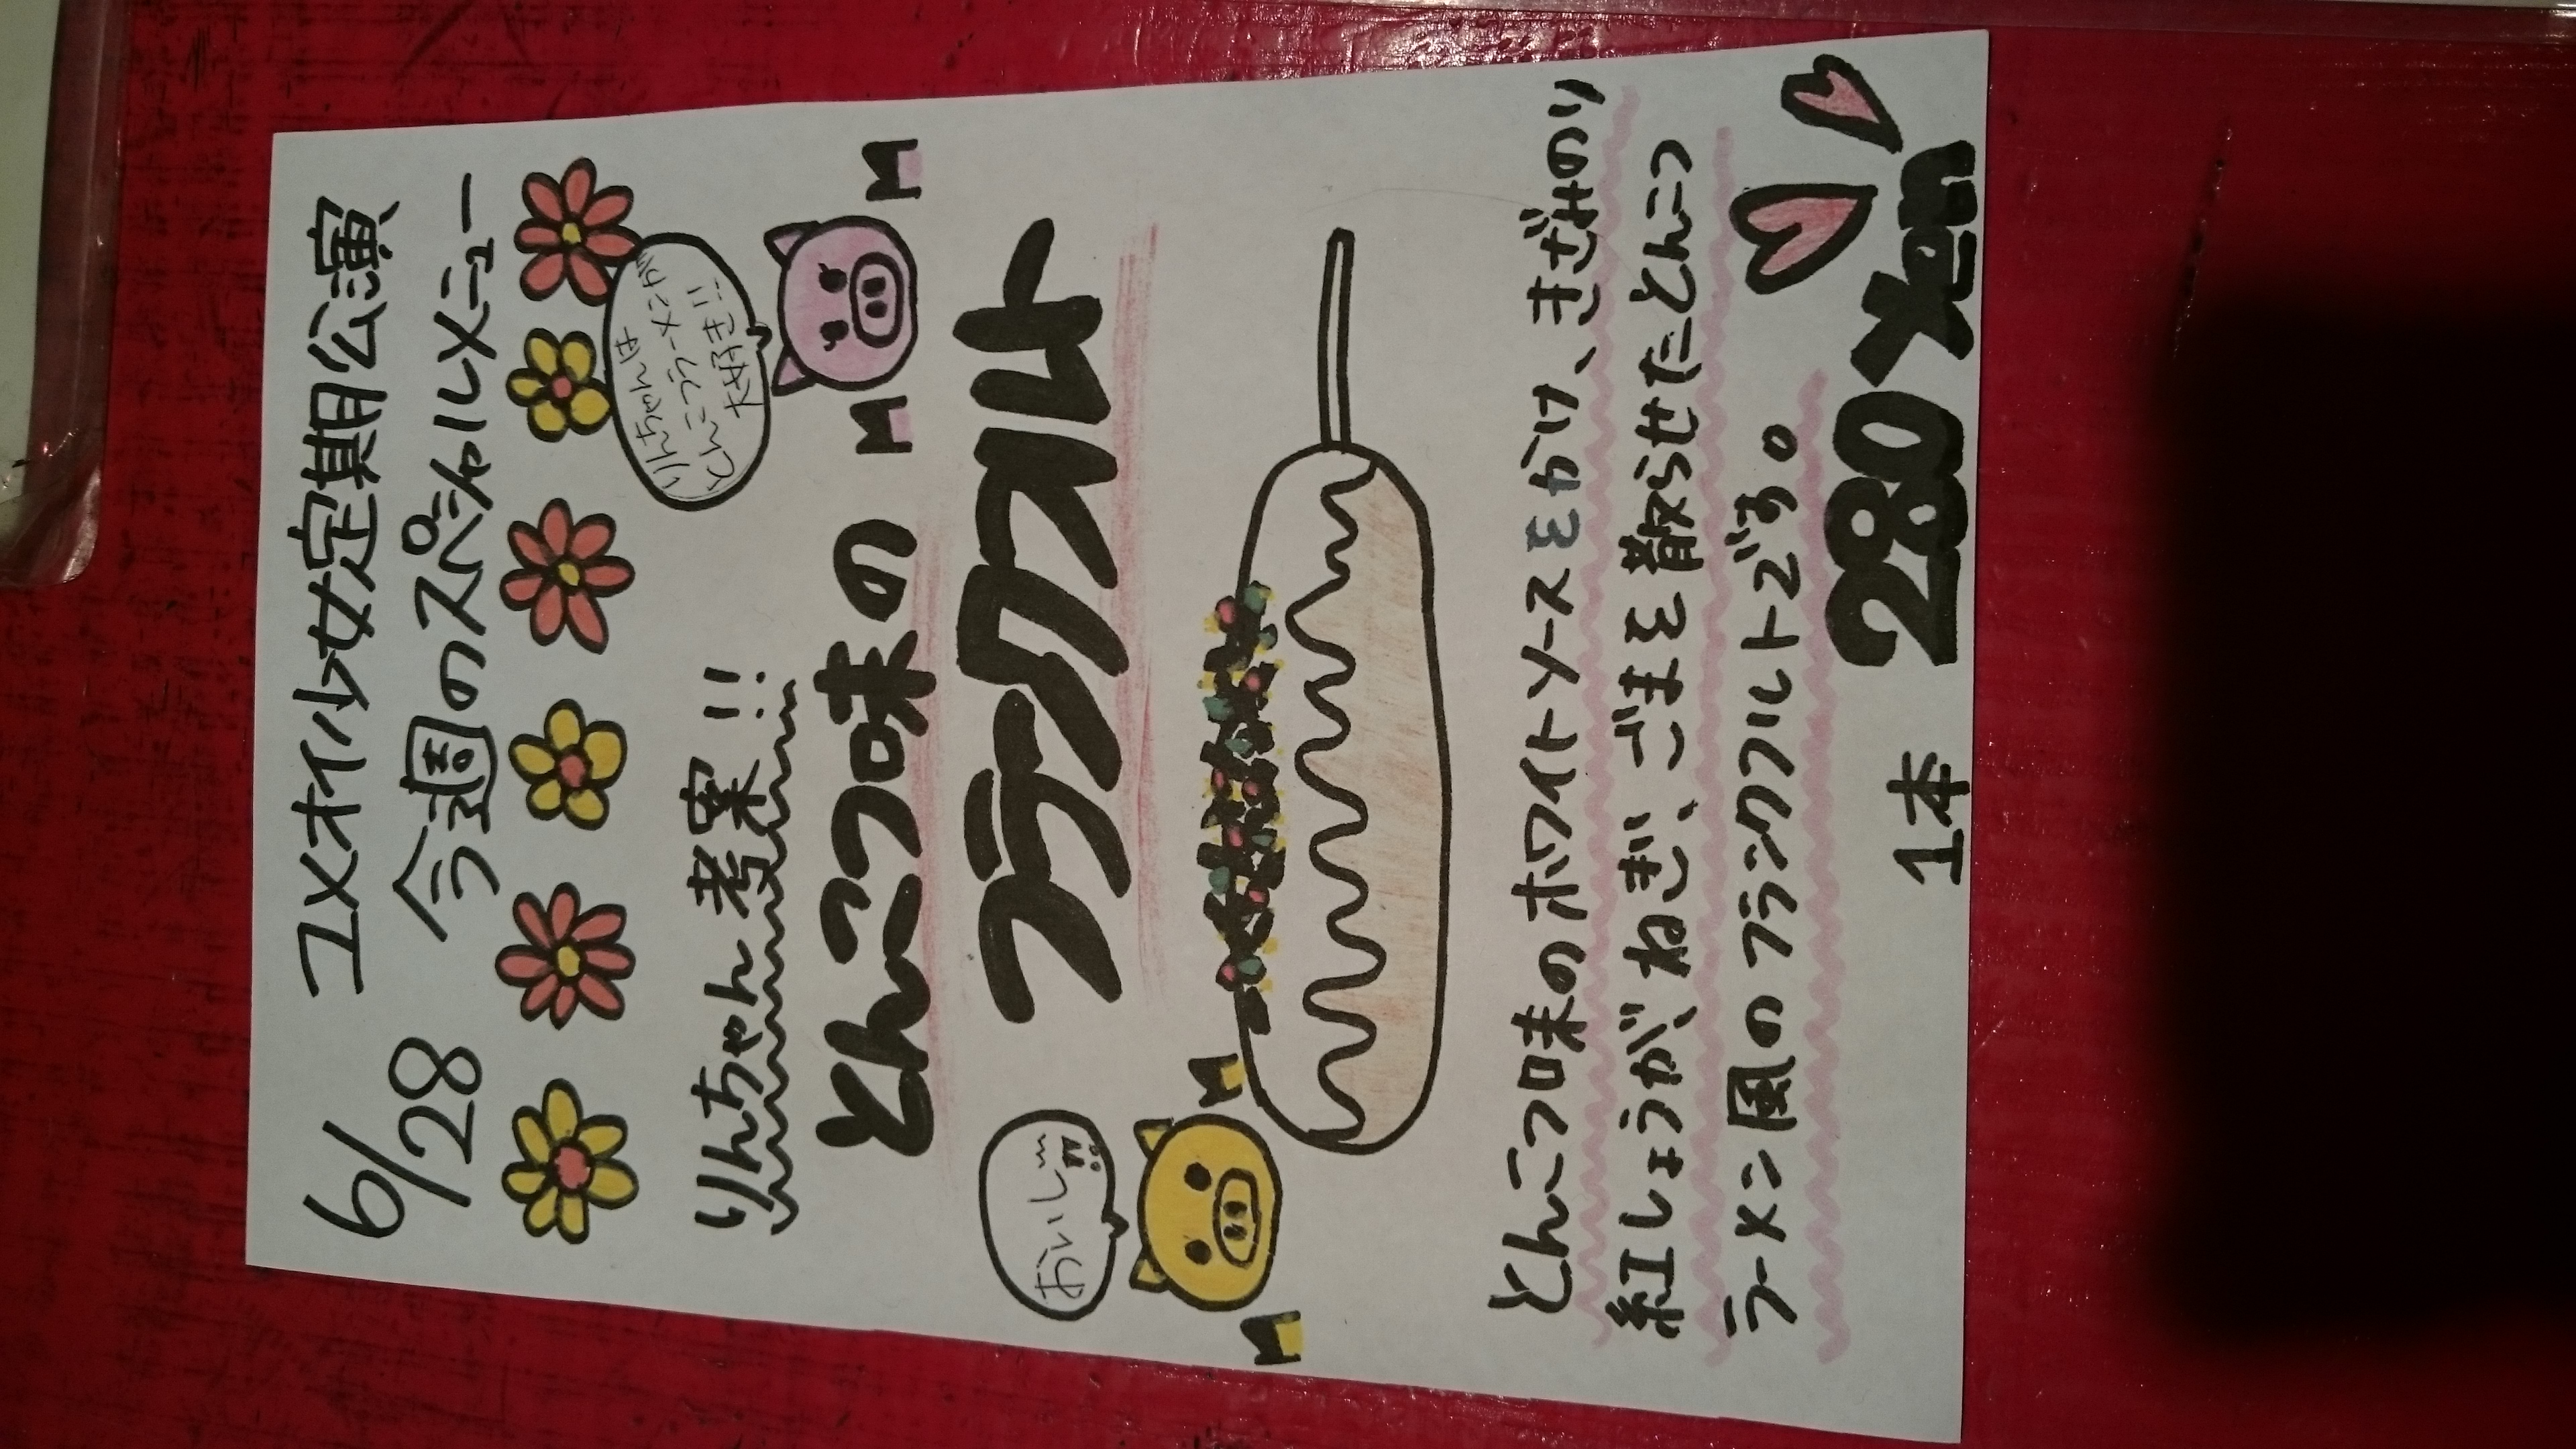 6/28
ユメオイ少女定期公演
今週のスペシャルメニュー
りんちゃん考案!!
りんちゃんは
とんこつラーメンが
大好き!!
とんこつ味の
フランクフルト
おいしー
とんこつ味のホワイトソースをかけ、きざみのり
紅しょうが、ねぎ、ごまを散らせたとんこつ
ラーメン風のフランクフルトです。
1本 280yen